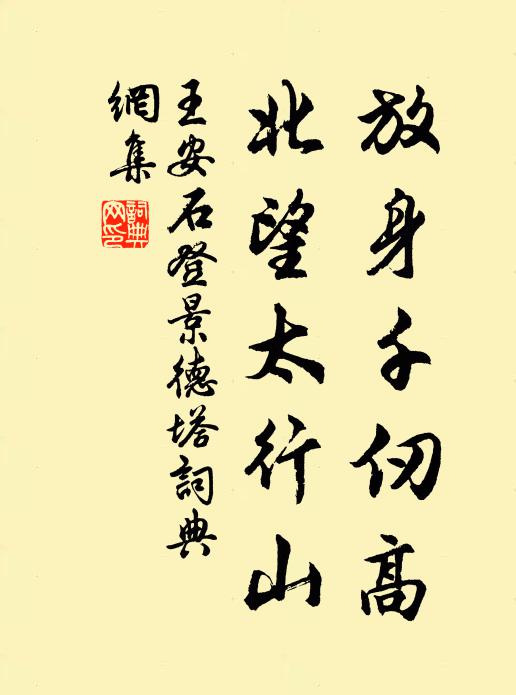 放身千仞高
北望太行山
王安石登景德塔詞典
網集
詞典網印